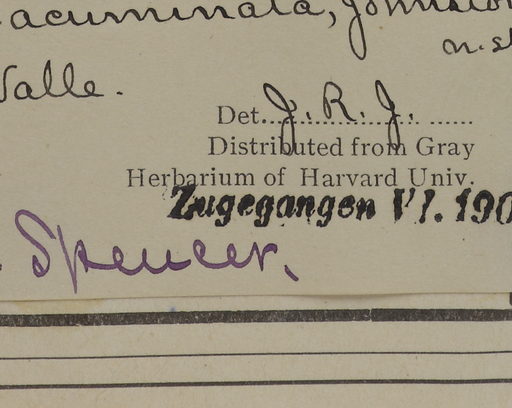 acuminata, Johnston
n. s
Valle.
Det. J. R. J.
Distributed from Gray
Herbarium of Harvard Univ.
Zugegangen VI. 190
Spencer.